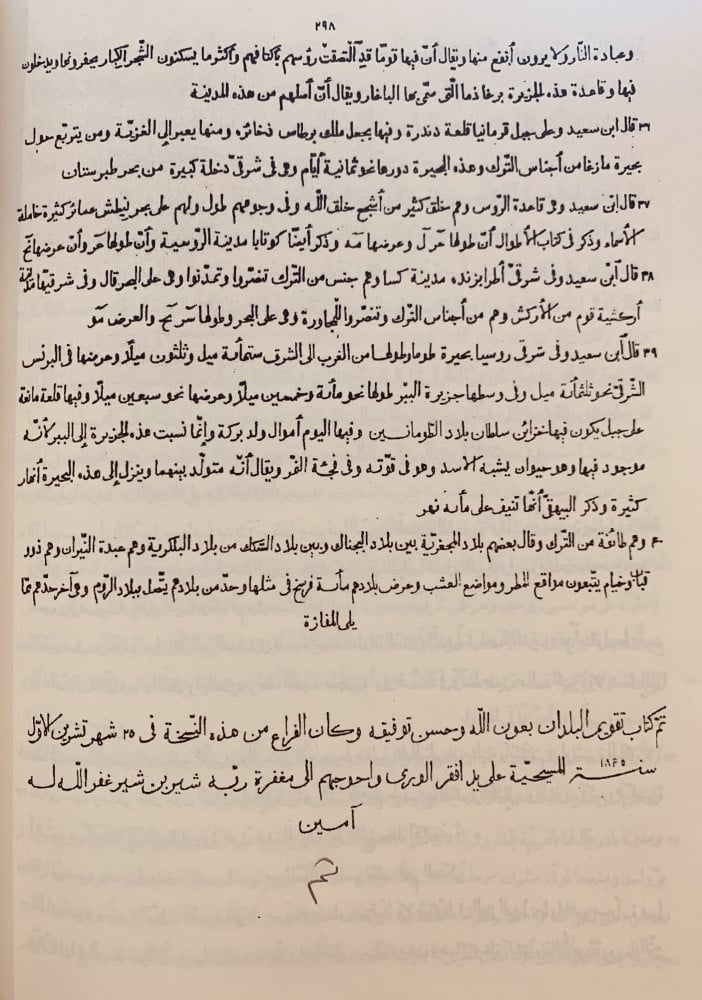 ٢٩٨
وعبادة النار ولا يرون أنفع منها ويقال أنّ فيها قومًا قد التصقت رؤسهم بأكتافهم وأكثر ما يسكنون الشجر الكبار يحفرونها ويدخلون
فيها وقاعدة هذه الجزيرة برغاذما الّتى سمّى بها الباغار ويقال أنّ أصلهم من هذه المدينة
٣٦ قال ابن سعيد وعلى جبل قرمانيا قلعة دندرة وفيها يجعل ملك برطاس ذخائره ومنها يعبر إلى الغزيّة ومن يتربّع حول
بحيرة مازغا من أجناس الترك وهذه البحيرة دورها نحو ثمانية أيّام وهى فى شرقىّ دخلة كبيرة من بحر طبرستان
٣٧ قال ابن سعيد وهى قاعدة الرّوس وهم خلق كثير من أشجع خلق اللّه وفى وجوههم طول ولهم على بحر نيطش عمائر كثيرة خاملة
الأسماء وذكر فى كتاب الأطوال أنّ طولها وعرضها وذكر أيضًا كوتابا مدينة الرّوسية وأنّ طولها وأنّ عرضها
٣٨ قال ابن سعيد وفى شرقىّ أطرابزنده مدينة كسا وهم جنس من الترك تنصّروا وتمدّنوا وهى على البحر قال وفى شرقيّها مدينة
أزكشية قوم من الأزكش وهم من أجناس الترك وتنصّروا للمجاورة وهى على البحر وطولها والعرض
٣٩ قال ابن سعيد وفى شرقى روسيا بحيرة طوما وطولها من الغرب إلى الشرق ستمائة ميل وثلثون ميلًا وعرضها فى البرنس
الشرقىّ نحو ثلثمائة ميل وفى وسطها جزيرة الببر طولها نحو مائة وخمسين ميلًا وعرضها نحو سبعين ميلًا وفيها قلعة مانعة
على جبل يكون فيها خزائن سلطان بلاد الطومانيين وفيها اليوم أموال ولد بركة وإنّما نسبت هذه الجزيرة إلى الببر لأنّه
موجود فيها وهو حيوان يشبه الأسد وهو فى قوّته وفى النمر ويقال أنّه متولّد بينهما وينزل إلى هذه البحيرة أنهار
كثيرة وذكر البيهقىّ أنّها تنيف على مائة نهر
٤٠ وهم طائفة من الترك وقال بعضهم بلاد المجغرية بين بلاد البجناك وبين بلاد السكك من بلاد البلكرية وهم عبدة النيران وهم ذوو
قباب وخيام يتّبعون مواقع المطر ومواضع العشب وعرض بلادهم مائة فرسخ فى مثلها وحدّ من بلادهم يتّصل ببلاد الرّوم وهو آخر حدّهم ممّا
يلى المفازة
تمّ كتاب تقويم البلدان بعون اللّه وحسن توفيقه وكان الفراغ من هذه النسخة فى ٢٥ شهر تشرين الاوّل
سنة ١٨٤٥ المسيحيّة على يد افقر الورى واحوجهم الى مغفرة ربّه شير بن شير غفر اللّه له
آمين
تمّ